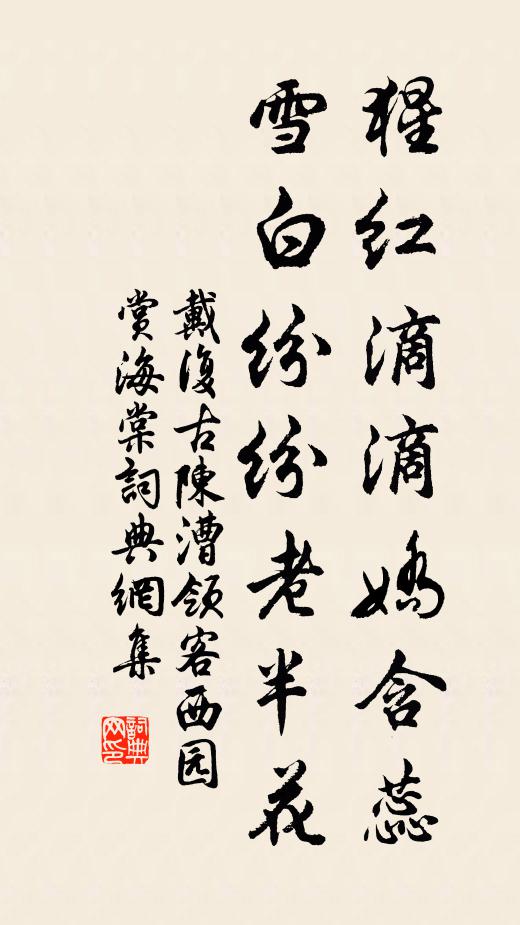 猩红滴滴娇含蕊
雪白纷纷老半花
戴復古陳漕領客西园
賞海棠詞典網集
詞典
网印